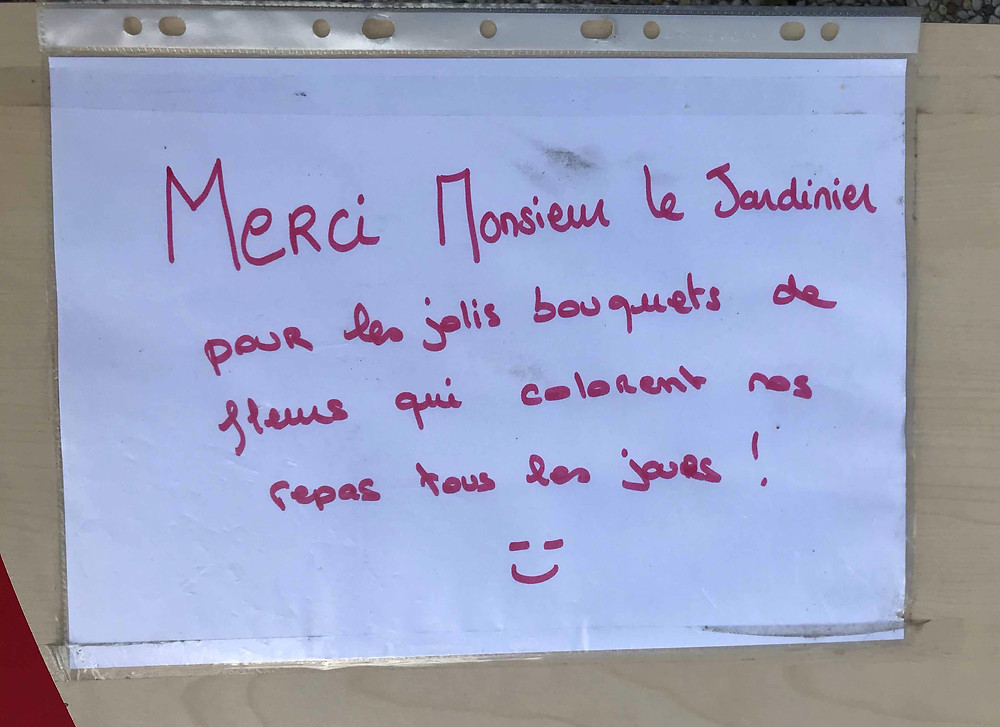 Merci Monsieur le Jardinier
pour les jolis bouquets de
fleurs qui colorent nos
repas tous les jours !